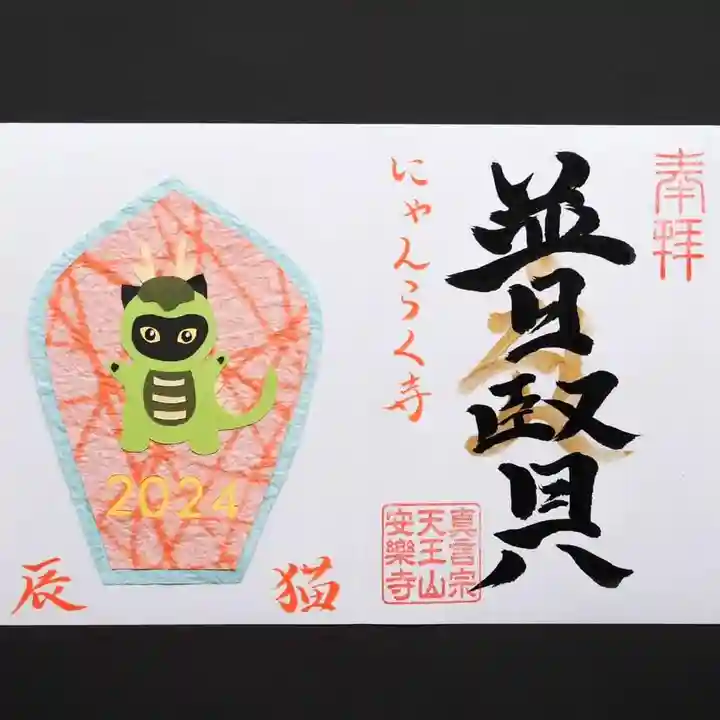 奉拝
普賢
にゃんらく寺
真言宗
天王山
安樂寺
2024
猫
辰